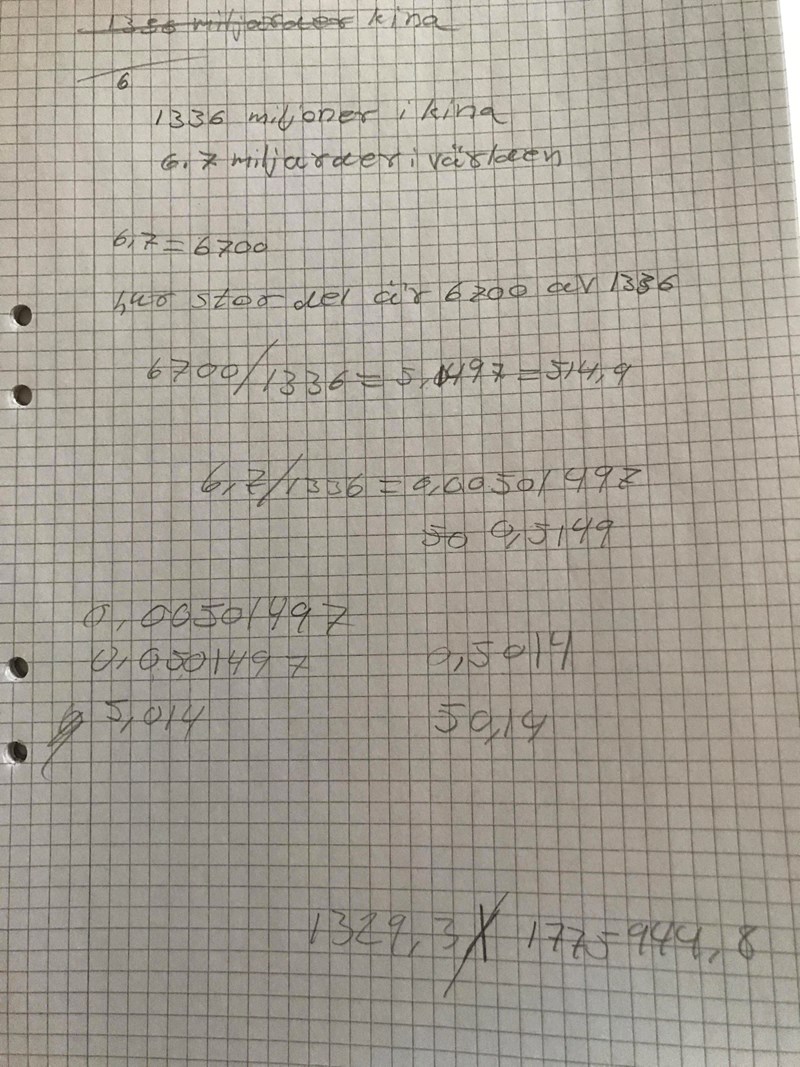 1336 miljarder kina
6
1336 miljoner i kina
6,7 miljarder i världen
6,7 = 6700
hur stor del är 6700 av 1336
6700/1336 = 5,1497 = 514,9
6,7/1336 = 0,00501497
50 0,5149
0,00501497
0,0501497 0,5014
5,014 50,14
1329,3 1775944,8